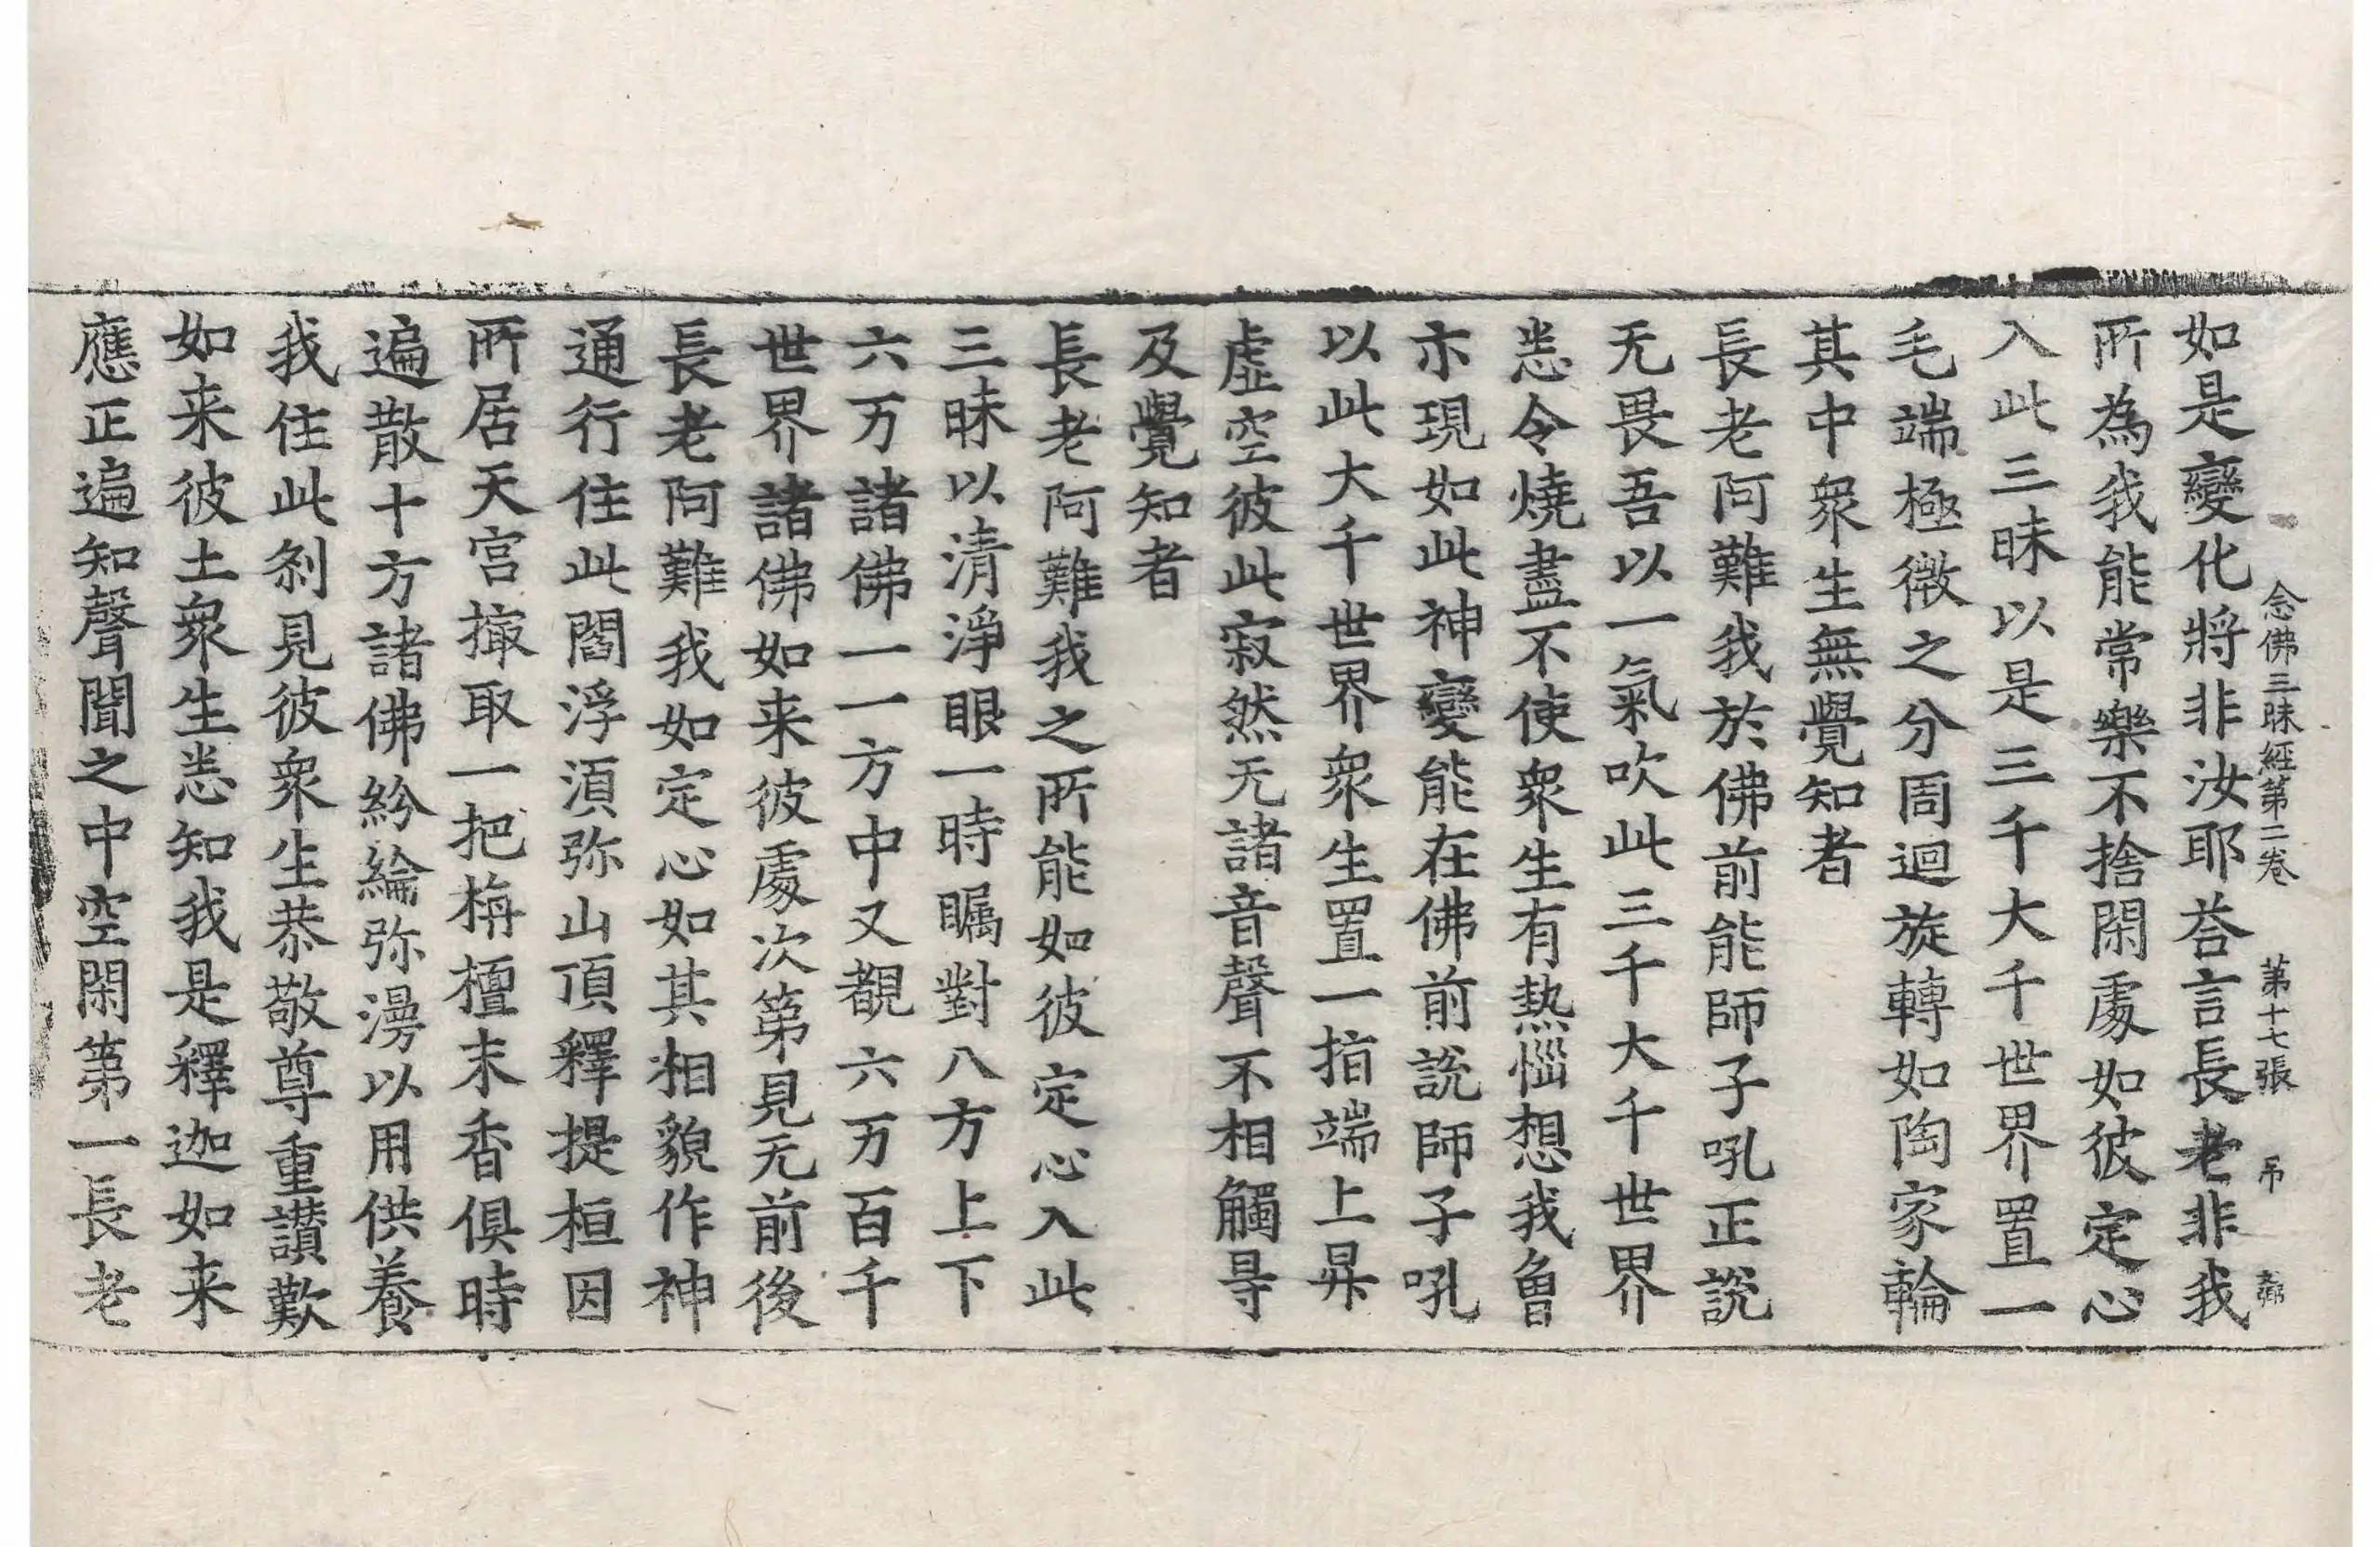 念佛三昧經第二卷　第十七張　吊
如是變化將非汝耶荅言長老非我
所為我能常樂不捨閑處如彼定心
入此三昧以是三千大千世界置一
毛端極微之分周迴旋轉如陶家輪
其中衆生無覺知者
長老阿難我於佛前能師子吼正說
无畏吾以一氣吹此三千大千世界
悉令燒盡不使衆生有熱惱想我曾
亦現如此神變能在佛前說師子吼
以此大千世界衆生置一指端上昇
虛空彼此寂然无諸音聲不相觸㝵
及覺知者
長老阿難我之所能如彼定心入此
三昧以清淨眼一時矚對八方上下
六万諸佛一一方中又覩六万百千
世界諸佛如来彼處次第見无前後
長老阿難我如定心如其相貌作神
通行住此閻浮湏弥山頂釋提桓因
所居天宮撮取一把栴檀末香俱時
遍散十方諸佛紛綸弥漫以用供養
我住此剎見彼衆生恭敬尊重讃歎
如来彼土衆生悉知我是釋迦如来
應正遍知聲聞之中空閑第一長老